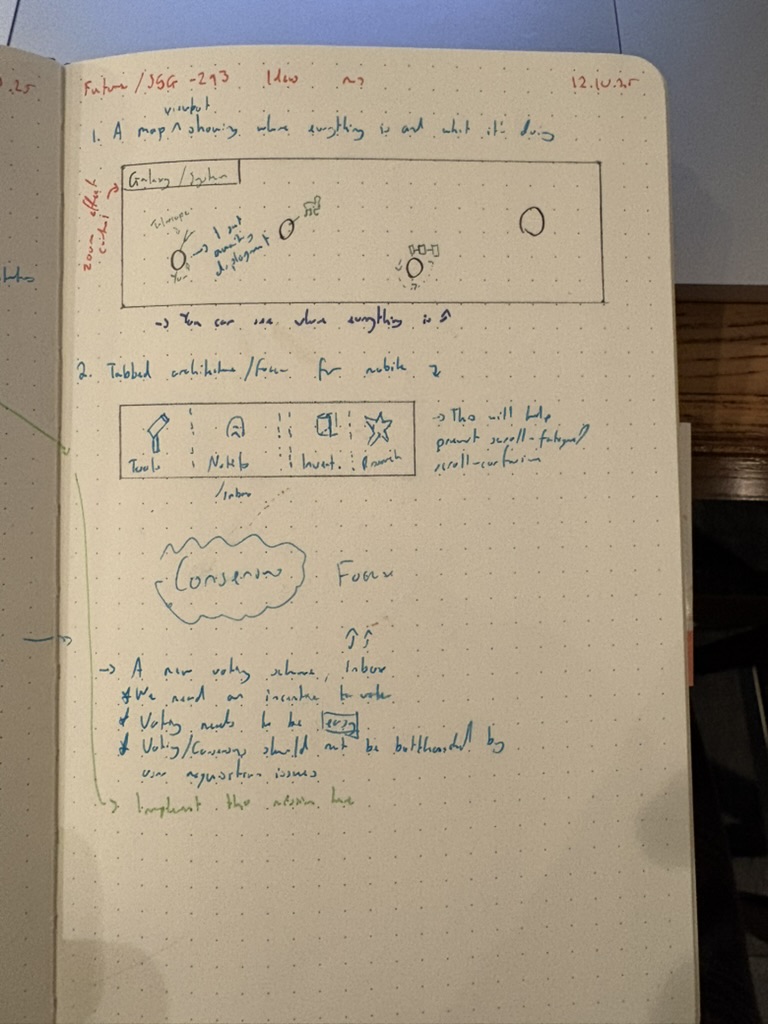 Future / JSG-293 Idea
12.10.25
viewport
1. A map ^ showing where everything is and what it's doing
Galaxy / System
zoom effect
Telescope
You
→ 1 sat
awaiting
deployment
→ You can see where everything is
2. Tabbed architecture/Focus for mobile
Tools
Note to
/Inbox
Invent.
Research
→ This will help
prevent scroll-fatigue/
scroll-confusion
Consensus Focus
→ A new voting scheme, Inbox
* We need an incentive to vote
* Voting needs to be easy
* Voting/Consensus should not be bottlenecked by
user acquisition issues
→ Implement the mission here